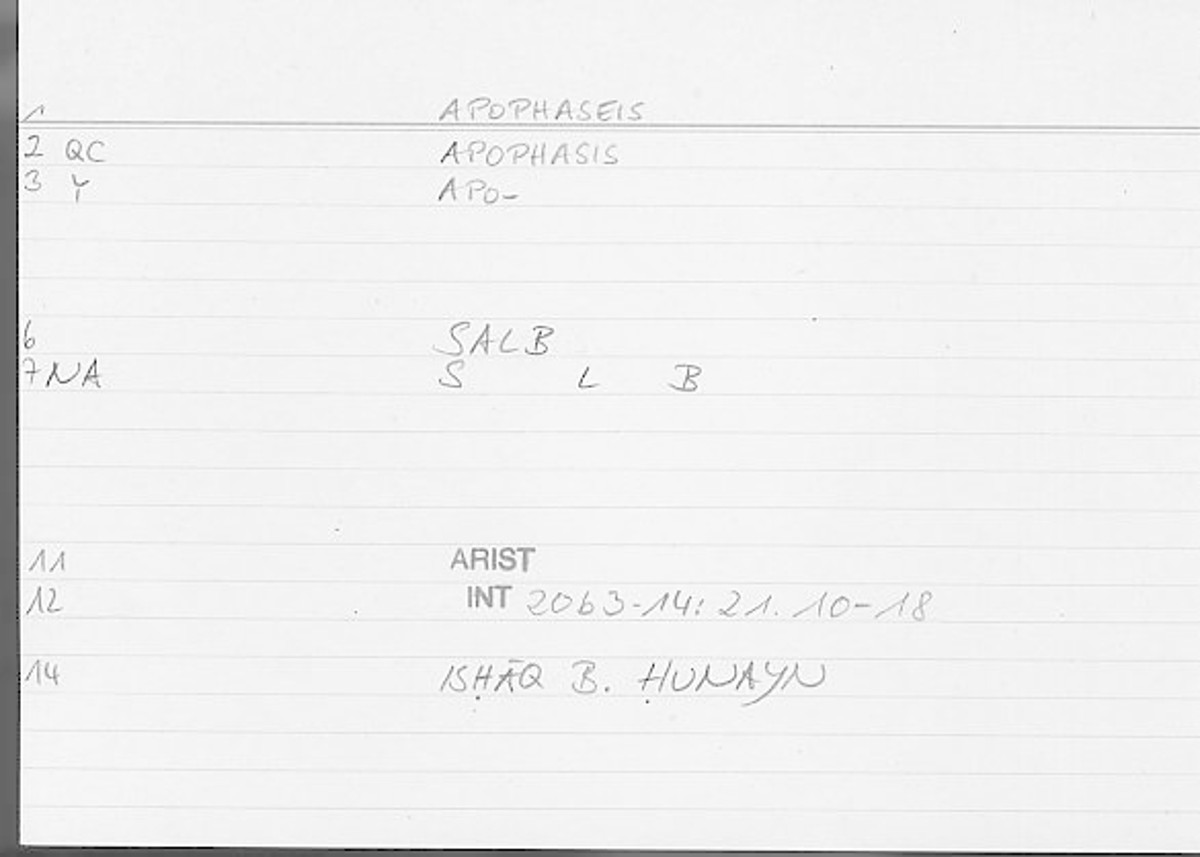 1 APOPHASEIS
2 QC APOPHASIS
3 Y APO-
6 SALB
7 NA S L B
11 ARIST
12 INT 20b3-14: 21.10-18
14 ISḤĀQ B. ḤUNAYN